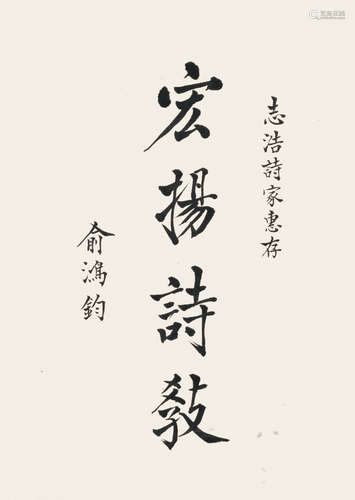 志浩詩家惠存
宏揚詩教
俞鴻鈞